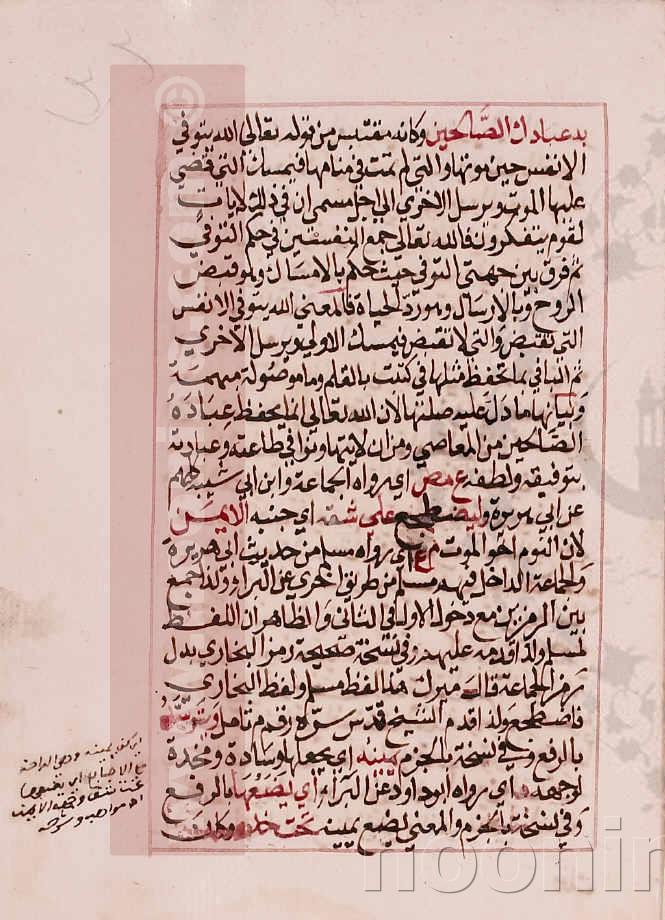 به عبادك الصَّالحين وكانه مقتبس من قوله تعالى الله يتوفى
الانفس حين موتها والتى لم تمت فى منامها فيمسك التى قضى
عليها الموت ويرسل الاخرى الى اجل مسمى ان فى ذلك لايات
لقوم يتفكرون فالله تعالى جمع النفسين فى حكم التوفى
ثم فرق بين جهتى التوفى حيث حكم بالامساك وهو قبض
الروح وبالارسال وهو رد الحياة فالمعنى الله يتوفى الانفس
التى تقبض والتى لا تقبض فيمسك الاولى ويرسل الأخرى
ثم الباء فى بما تحفظ مثلها فى كتبت بالقلم وما موصولة مبهمة
وبيانها ما دل عليه صلتها لان الله تعالى انما يحفظ عباده
الصَّالحين من المعاصى ومن ان لا يتهاونوا فى طاعته وعبادته
بتوفيقه ولطفه ع مص اى رواه الجماعة وابن ابى شيبة كلهم
عن ابى هريرة وليضطجع على شقه اى جنبه الايمن
لان النوم اخو الموت م ع اى رواه مسلم من حديث ابى هريرة
والجماعة الداخل فيهم مسلم من طريق اخرى عن البراء ولذا جمع
بين الرمزين مع دخول الاول فى الثانى والظاهر ان اللفظ
لمسلم ولذا قدمه عليهم وفى نسخة صحيحة رمز البخارى بدل
رمز الجماعة قال ميرك هذا لفظ مسلم ولفظ البخارى
فاضطجع ولذا قدم الشيخ قدس سره رقم م تامل ويتوسد
بالرفع وفى نسخة بالجزم يمينه اى يجعلها وسادة ومخدة
لوجهه د اى رواه ابو داود عن البراء اى ليضعها بالرفع
وفى نسخة بالجزم والمعنى ليضع يمينه تحت خده وكان
noorir